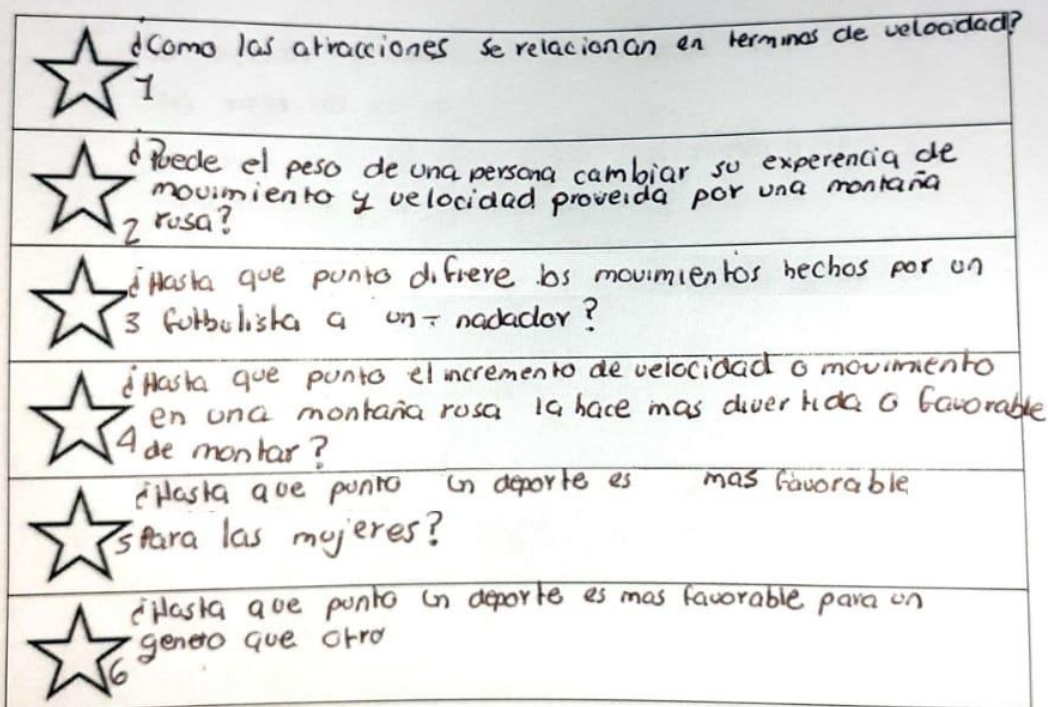 ¿Como las atracciones se relacionan en terminos de velocidad?
1
¿Puede el peso de una persona cambiar su experencia de
movimiento y velocidad proveida por una montaña
2 rusa?
¿Hasta que punto difiere los movimientos hechos por un
3 futbolista a un - nadador?
¿Hasta que punto el incremento de velocidad o movimiento
en una montaña rusa la hace mas divertida o favorable
4 de montar?
¿Hasta que punto un deporte es mas favorable
5 Para las mujeres?
¿Hasta que punto un deporte es mas favorable para un
genero que otro
6